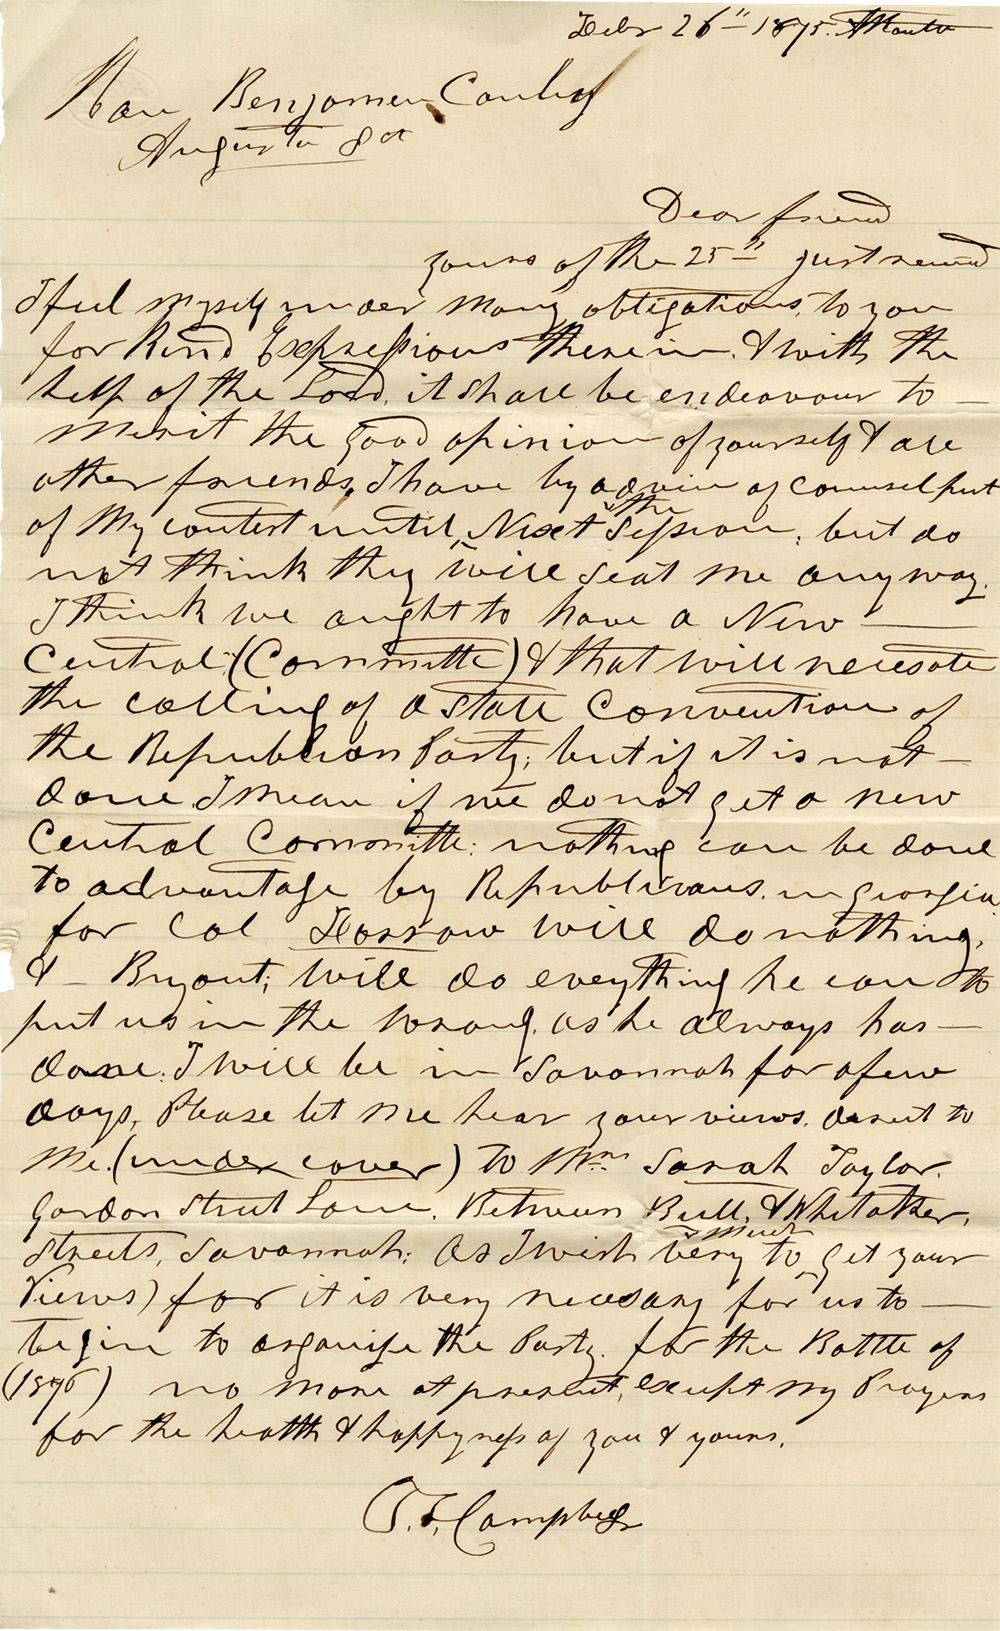 Feby 26" 1875.
Hon Benjamen Conley
Augusta Ga
Dear friend
yours of the 25" just recievd
I feel myself under many obligations, to you
for Kind Expressions therein. & with the
help of the Lord, it shall be endeavour to —
Merit the good opinion of yourself & all
other friends, I have by advice of Counsel put
of My contest until, Next the Session, but do
not think they will seat me anyway.
I think we aught to have a New —
Central (Committe) & that will necesate
the calling of a State Convention of
the Republican Party; but if it is not —
done I mean if we do not get a new
Central Committe; nothing can be done
to advantage by Republicans. in georgia
for Col Farrow will do nothing,
& — Bryant; will do everything he can to
put us in the wrong. as he always has —
done. I will be in Savannah for a few
days, Please let me hear your views. deract to
Me. (under cover) to Mrs Sarah Taylor.
Gordon Street Lane. Between Bull, & Whitaker,
Streets, Savannah; As I wish very much to get your
Views) for it is very necessary for us to —
begin to organise the Party. for the Battle of
(1876) no more at present, except my Prayers
for the health & happyness of you & yours.
T. G. Campbell